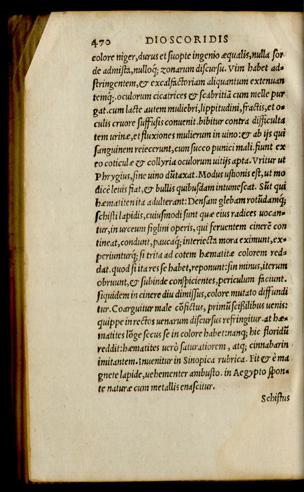 470 DIOSCORIDIS
colore niger, durus et suopte ingenio æqualis, nulla sor
de admista, nulloq; zonarum discursu. Vim habet ad-
stringentem, & excalfactoriam aliquantum extenuan
temq;. oculorum cicatrices & scabritiā cum melle pur
gat. cum lacte autem muliebri, lippitudini, fractis, et o-
culis cruore suffusis conuenit. bibitur contra difficulta
tem urinæ, et fluxiones mulierum in uino: & ab ijs qui
sanguinem reiecerunt, cum succo punici mali. fiunt ex
eo coticulæ & collyria oculorum uitijs apta. Vritur ut
Phrygius, sine uino dūtaxat. Modus ustionis est, ut mo
dicè leuis fiat, & bullis quibusdam intumescat. Sūt qui
hæmatiten ita adulterant: Densam glebam rotūdamq;
schisti lapidis, cuiusmodi sunt quæ eius radices uocan-
tur, in urceum figlini operis, qui feruentem cinerē con
tineat, condunt, paucaq; interiecta mora eximunt, ex-
periunturq; si trita ad cotem hæmatitæ colorem red-
dat. quod si ita res se habet, reponunt: sin minus, iterum
obruunt, & subinde conspicientes, periculum faciunt.
siquidem in cinere diu dimissus, colore mutato diffundi
tur. Coarguitur male cōfictus, primū scissilibus uenis:
quippe in rectos uenarum discursus refringitur. at hæ-
matites lōge secus se in colore habet: nanq; hic floridū
reddit: hæmatites uerò saturatiorem, atq; cinnabarin
imitantem. Inuenitur in Sinopica rubrica. Fit & è ma
gnete lapide, uehementer ambusto. in Aegypto spon-
te naturæ cum metallis enascitur.
Schistus